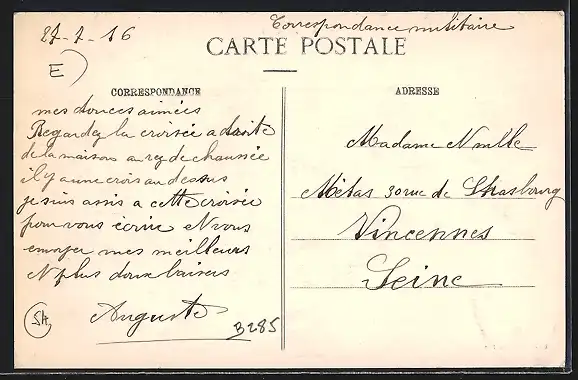 27-7-16
Correspondance militaire
CARTE POSTALE
E
CORRESPONDANCE
mes douces aimées
Regardez la croisée a droite
de la maison au rez de chaussée
il y a une crois au dessus
je suis assis a cette croisée
pour vous écrire et vous
envoyer mes meilleurs
et plus doux baisers
Auguste
SH
B285
ADRESSE
Madame et Mlle
Métas 30 rue de Strasbourg
Vincennes
Seine